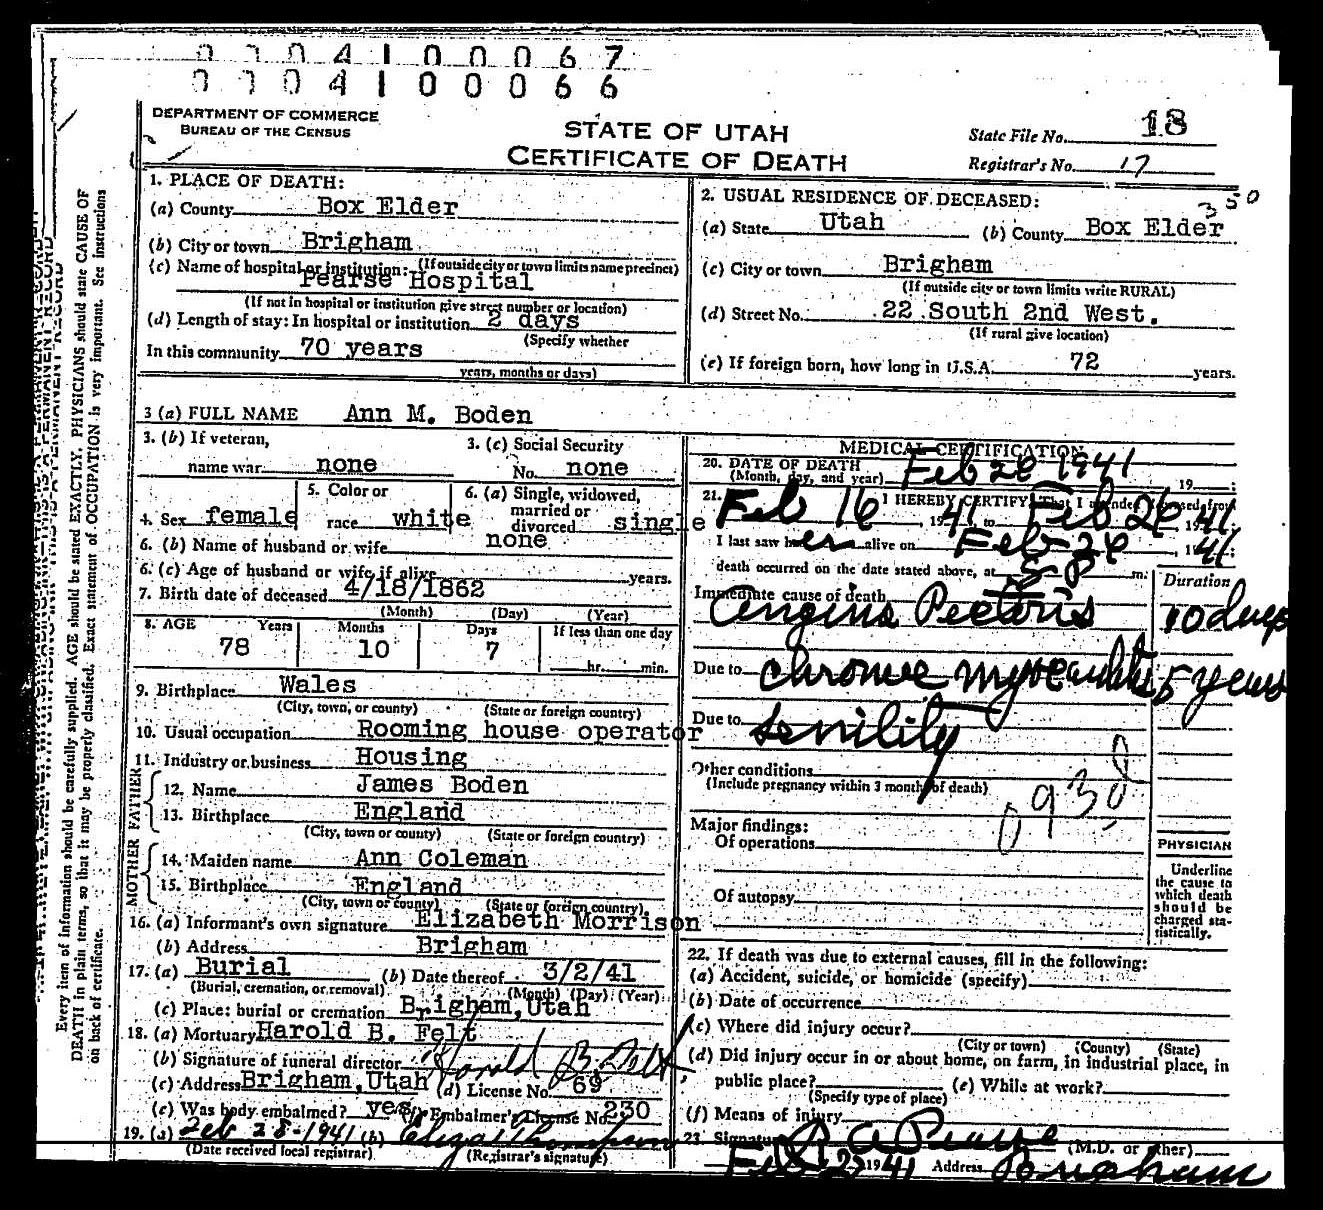 0004100067
0004100066
DEPARTMENT OF COMMERCE
BUREAU OF THE CENSUS
STATE OF UTAH
CERTIFICATE OF DEATH
State File No. 18
Registrar's No. 17
1. PLACE OF DEATH:
(a) County Box Elder
(b) City or town Brigham
(If outside city or town limits name precinct)
(c) Name of hospital or institution:
Pearse Hospital
(If not in hospital or institution give street number or location)
(d) Length of stay: In hospital or institution 2 days
(Specify whether
In this community 70 years
years, months or days)
2. USUAL RESIDENCE OF DECEASED:
350
(a) State Utah (b) County Box Elder
(c) City or town Brigham
(If outside city or town limits write RURAL)
(d) Street No. 22 South 2nd West.
(If rural give location)
(e) If foreign born, how long in U.S.A. 72 years.
3 (a) FULL NAME Ann M. Boden
3. (b) If veteran,
name war none
3. (c) Social Security
No. none
4. Sex female
5. Color or
race white
6. (a) Single, widowed,
married or
divorced single
6. (b) Name of husband or wife none
6. (c) Age of husband or wife if alive years.
7. Birth date of deceased 4/18/1862
(Month) (Day) (Year)
8. AGE Years Months Days If less than one day
78 10 7 hr. min.
9. Birthplace Wales
(City, town, or county) (State or foreign country)
10. Usual occupation Rooming house operator
11. Industry or business Housing
FATHER
12. Name James Boden
13. Birthplace England
(City, town or county) (State or foreign country)
MOTHER
14. Maiden name Ann Coleman
15. Birthplace England
(City, town or county) (State or foreign country)
16. (a) Informant's own signature Elizabeth Morrison
(b) Address Brigham
17. (a) Burial (b) Date thereof 3/2/41
(Burial, cremation, or removal) (Month) (Day) (Year)
(c) Place: burial or cremation Brigham, Utah
18. (a) Mortuary Harold B. Felt
(b) Signature of funeral director Harold B Felt
(c) Address Brigham, Utah (d) License No. 69
(e) Was body embalmed? yes (f) Embalmer's License No. 230
19. (a) Feb 28-1941 (b) Eliza Thompson
(Date received local registrar) (Registrar's signature)
MEDICAL CERTIFICATION
20. DATE OF DEATH
(Month, day, and year) Feb 26 1941 19
21. I HEREBY CERTIFY, That I attended deceased from
Feb 16, 1941 to Feb 26, 1941
I last saw her alive on Feb 26, 1941;
death occurred on the date stated above, at 5 P m.
Duration
Immediate cause of death
Angina Pectoris 10 days
Due to chronic myocarditis 5 years
Due to senility
Other conditions
(Include pregnancy within 3 months of death)
093d
Major findings:
Of operations
Of autopsy
PHYSICIAN
Underline
the cause to
which death
should be
charged sta-
tistically.
22. If death was due to external causes, fill in the following:
(a) Accident, suicide, or homicide (specify)
(b) Date of occurrence
(c) Where did injury occur?
(City or town) (County) (State)
(d) Did injury occur in or about home, on farm, in industrial place, in
public place? (e) While at work?
(Specify type of place)
(f) Means of injury
23. Signature R A Pearse (M.D. or other)
Feb 27 1941 Address Brigham
Every item of information should be carefully supplied. AGE should be stated EXACTLY. PHYSICIANS should state CAUSE OF
DEATH in plain terms, so that it may be properly classified. Exact statement of OCCUPATION is very important. See instructions
on back of certificate.